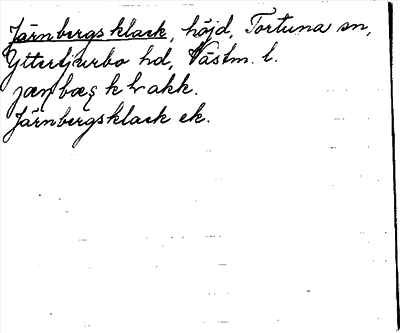 Järnbergsklack, höjd, Tortuna sn,
Yttertjurbo hd, Västm. l.
Järnbergsklack ek.